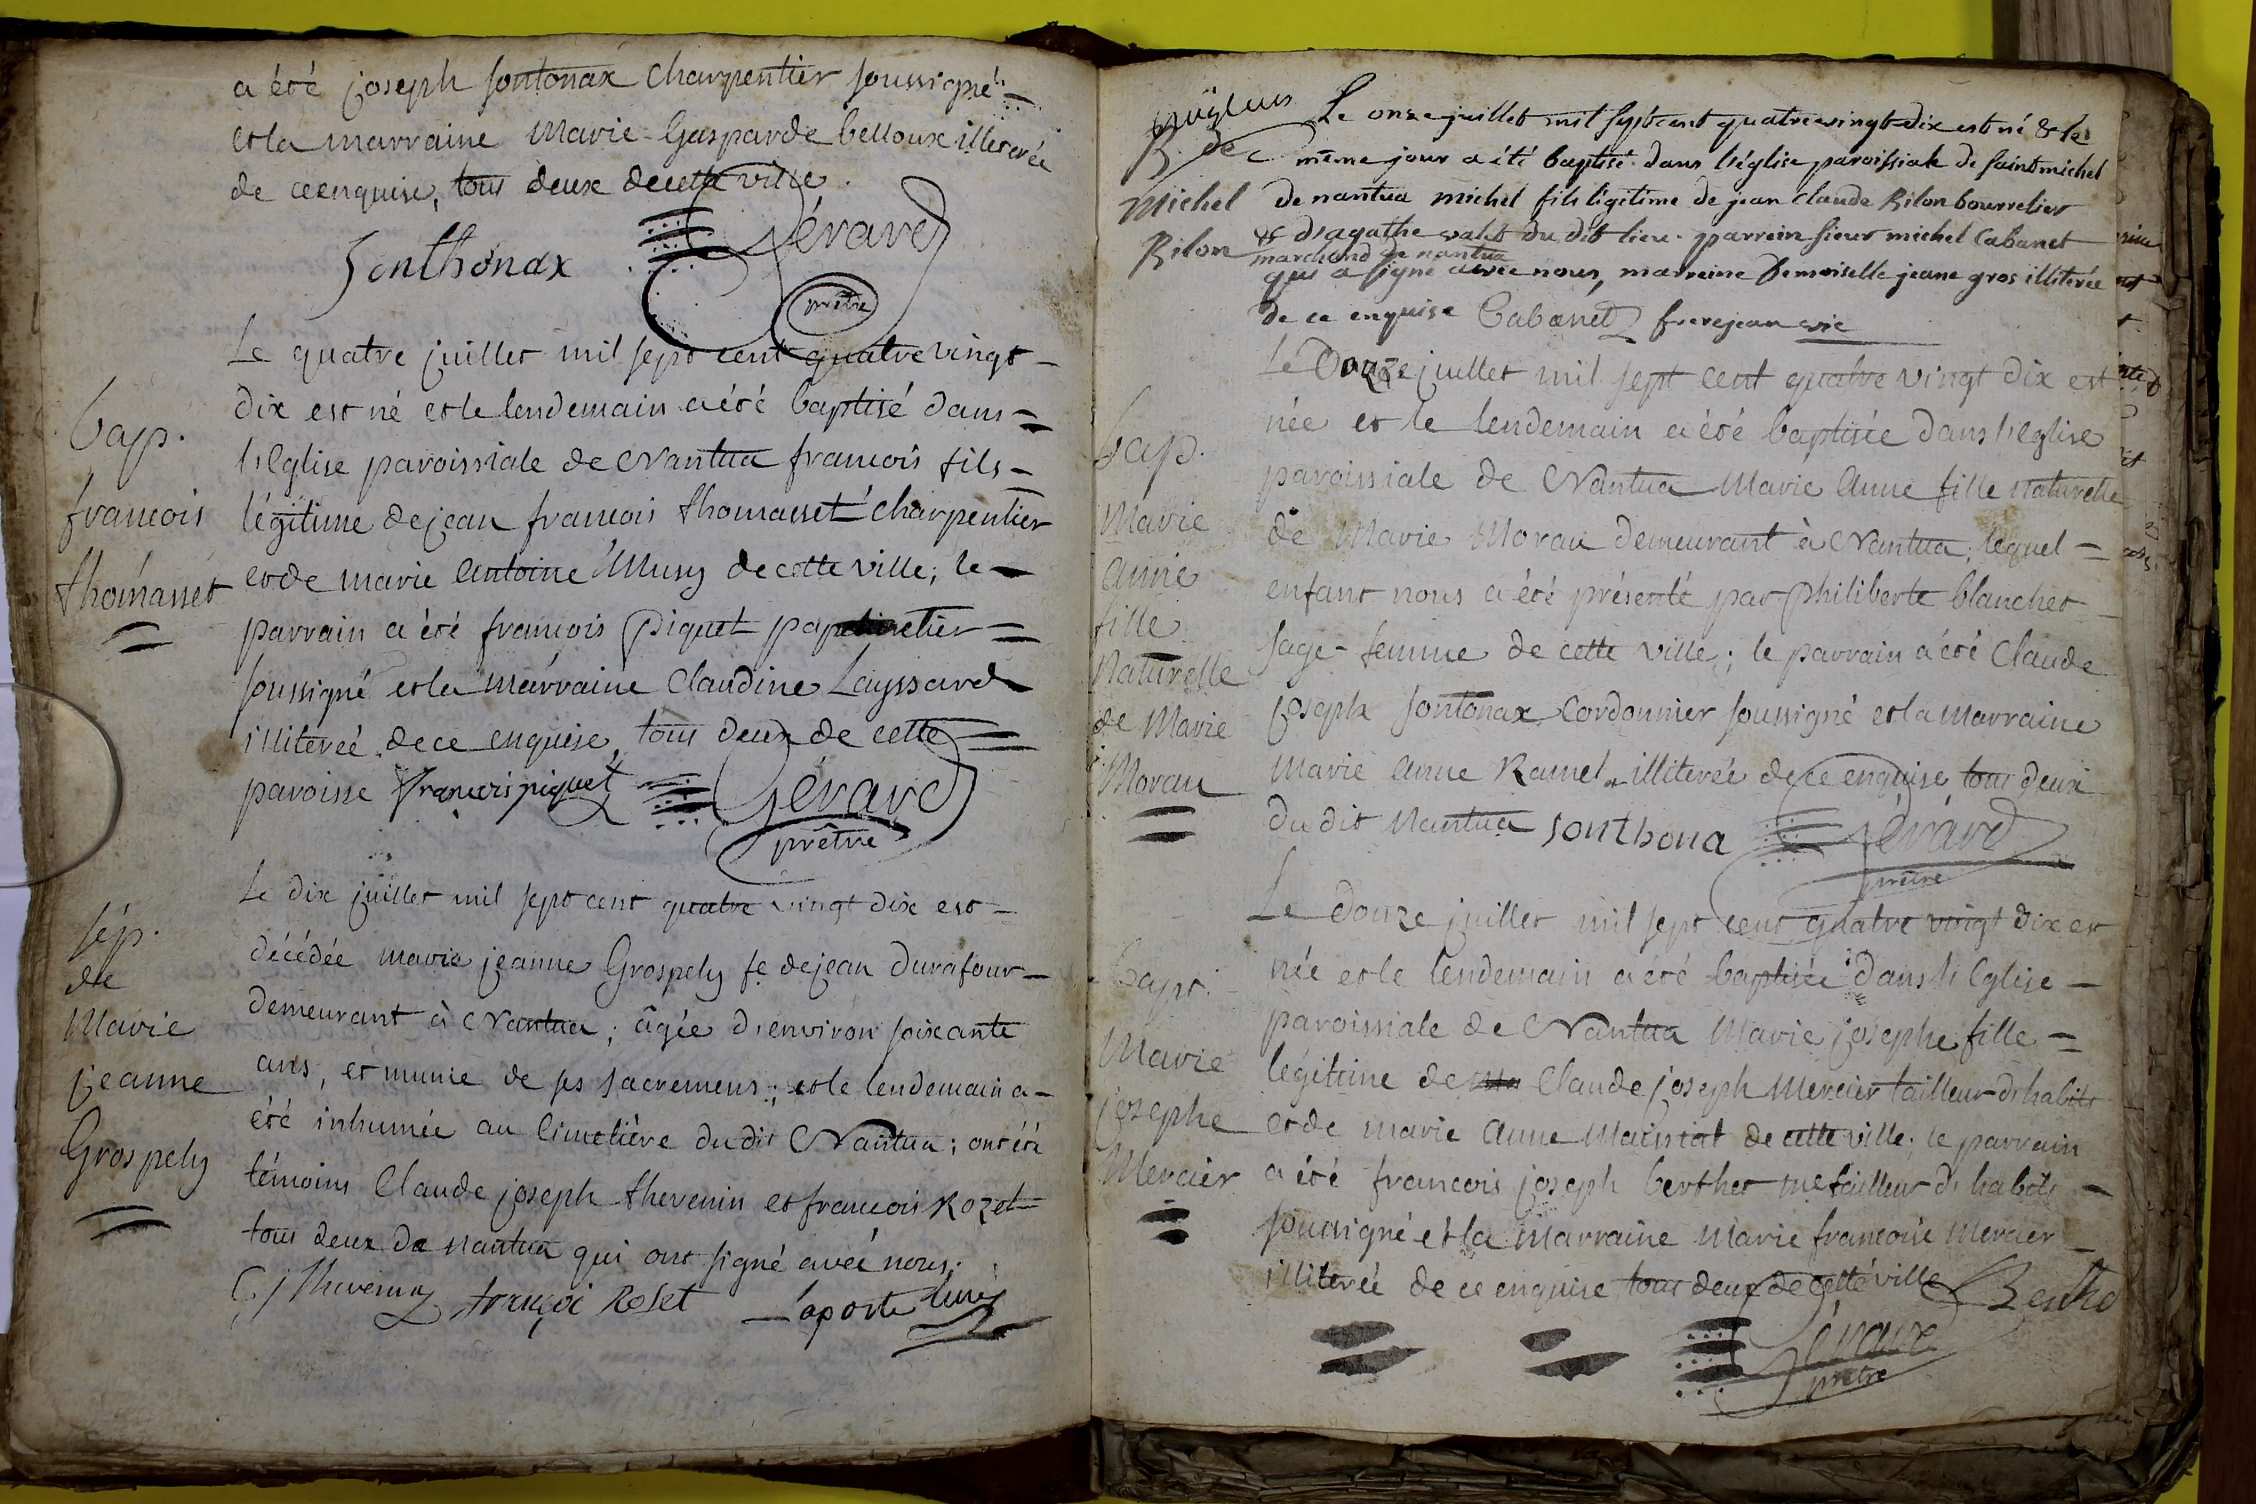 a été joseph sontonax charpentier soussigné
et la marraine Marie Gasparde belloux illiterée
de ce enquise, tous deux de cette ville.
Sonthonax Gérard
prêtre
Le quatre juillet mil sept cent quatre vingt
dix est né et le lendemain a été baptisé dans
l'eglise paroissiale de Nantua francois fils
légitime de jean francois thomasset charpentier
et de marie antoine Musy de cette ville; le
parrain a été francois Piquet
soussigné et la marraine Claudine Layssard
illiterée de ce enquise, tous deux de cette
paroisse françois piquet Gérard
prêtre
bap.
francois
thomasset
Le dix juillet mil sept cent quatre vingt dix est
décédée marie jeanne Grospely fe de jean durafour
demeurant à Nantua; âgée d'environ soixante
ans, et munie de ses sacremens; et le lendemain a
été inhumée au Cimetière du dit Nantua; ont été
témoins Claude joseph thevenin et francois Rozet
tous deux de nantua qui ont signé avec nous.
C j Thevenin françoi Roset Laporte curé
sép.
de
Marie
jeanne
Grospely
Le onze juillet mil sept cent quatre vingt dix est né & le
même jour a été baptisé dans l'église paroissiale de saint michel
de nantua michel fils légitime de jean claude Rilon bourrelier
& d'agathe valet du dit lieu. parrein sieur michel Cabanet
marchand de nantua
qui a signé avec nous, marreine Demoiselle jeane gros illitérée
de ce enquise Cabanet frerejean vic
B. de
Michel
Rilon
Le Douze juillet mil sept cent quatre vingt dix est
née et le lendemain a été baptisée dans l'eglise
paroissiale de Nantua Marie Anne fille naturelle
de Marie Morau demeurant à Nantua, lequel
enfant nous a été présenté par Philiberte blanchet
sage-femme de cette ville; le parrain a été Claude
joseph sontonax Cordonnier soussigné et la marraine
Marie Anne Ramel illiterée de ce enquise, tous deux
du dit Nantua sonthona Gérard
prêtre
bap.
Marie
Anne
fille
Naturelle
de Marie
Morau
Le douze juillet mil sept cent quatre vingt dix est
née et le lendemain a été baptisée dans l'Eglise
paroissiale de Nantua Marie josephe fille
légitime de Claude joseph Mercier tailleur d'habits
et de marie Anne de cette ville; le parrain
a été francois joseph berthet me tailleur d'habits
soussigné et la marraine Marie francoise Mercier
illiterée de ce enquise tous deux de cette ville
Gérard
prêtre
bapt.
Marie
josephe
Mercier